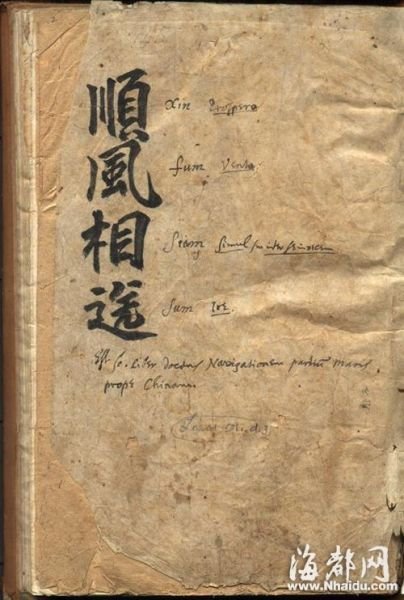 順風相送
Xin prospero
fum Vento
Siam simul
Sum Ire
Est liber docens Navigationem partium Maris
prope Chinam
海都网
www.Nhaidu.com